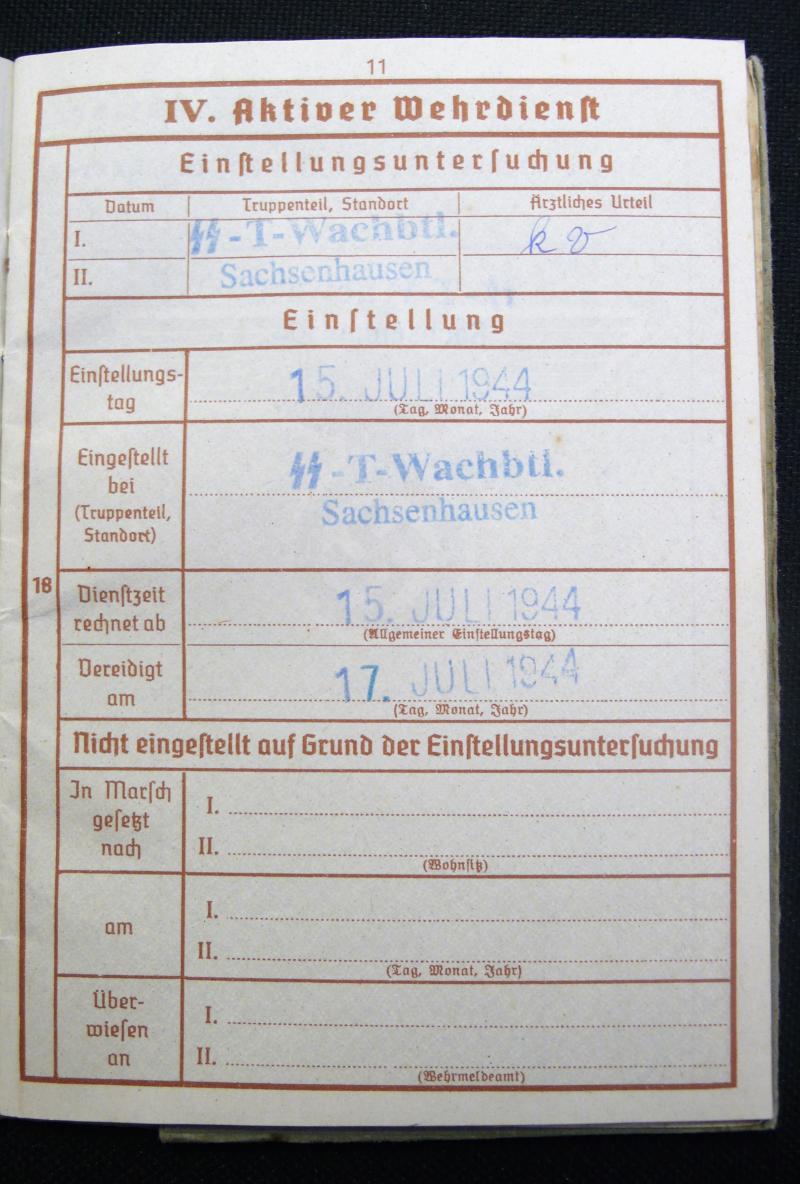 11
IV. Aktiver Wehrdienst
Einstellungsuntersuchung
Datum Truppenteil, Standort Ärztliches Urteil
I. ᛋᛋ-T-Wachbtl. kv
II. Sachsenhausen
Einstellung
Einstellungs-
tag
15. JULI 1944
(Tag, Monat, Jahr)
Eingestellt
bei
(Truppenteil,
Standort)
ᛋᛋ-T-Wachbtl.
Sachsenhausen
18
Dienstzeit
rechnet ab
15. JULI 1944
(Allgemeiner Einstellungstag)
Vereidigt
am
17. JULI 1944
(Tag, Monat, Jahr)
Nicht eingestellt auf Grund der Einstellungsuntersuchung
In Marsch
gesetzt
nach
I.
II.
(Wohnsitz)
am
I.
II.
(Tag, Monat, Jahr)
Über-
wiesen
an
I.
II.
(Wehrmeldeamt)